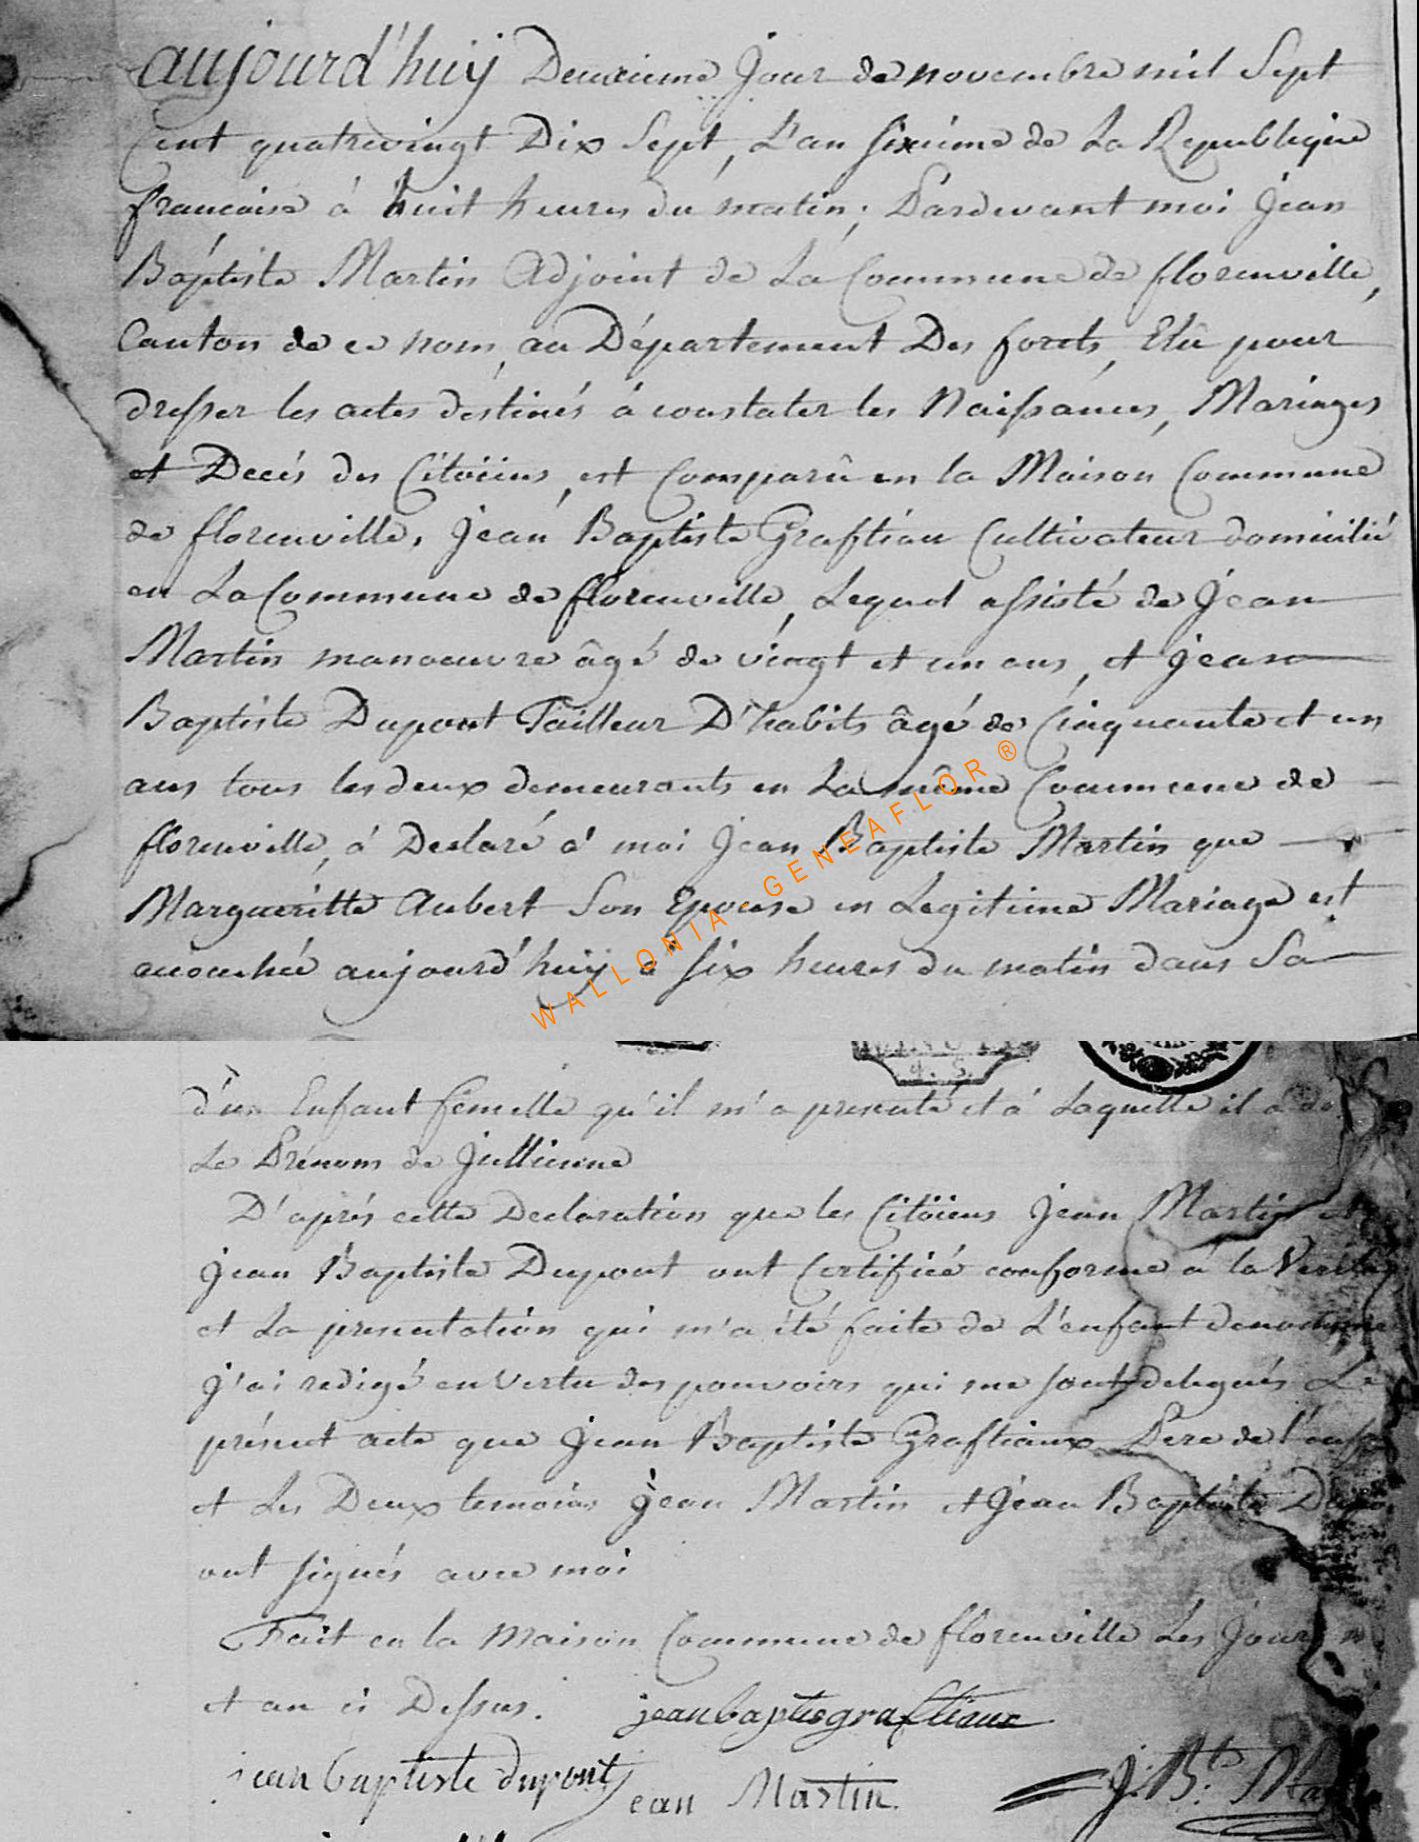 aujourd'huÿ Deuxieme Jour de novembre mil Sept
Cent quatrevingt Dix Sept, L'an sixième de La Republique
francaise à huit heures du matin; Pardevant moi Jean
Baptiste Martin Adjoint de La Commune de florenville,
Canton de ce nom, au Département Des forêts, Elû pour
dresser les actes destinés à constater les Naissances, Mariages
et Decés des Citoïens, est Comparû en la Maison Commune
de florenville, Jean Baptiste Graftiau Cultivateur domicilié
en La Commune de florenville, Lequel assisté de Jean
Martin manoeuvre âgé de vingt et un ans, et Jean
Baptiste Dupont Tailleur D'habits âgé de Cinquante et un
ans tous les deux demeurants en La même Commune de
florenville, à Declaré à moi Jean Baptiste Martin que
Margueritte Aubert Son Epouse en Legitime Mariage est
accouchée aujourd'huÿ à six heures du matin dans Sa
d'un Enfant femelle qu'il m'a presenté et à Laquelle il a
Le Prénom de Jullienne
D'après cette Declaration que les Citoïens Jean Martin et
Jean Baptiste Dupont ont Certifié conforme à la Verité
et La presentation qui m'a été faite de L'enfant denommé
j'ai redigé en vertu des pouvoirs qui me sont delegués Le
présent acte que Jean Baptiste Graftiaux Pere de l'enf
et Les Deux temoins Jean Martin et Jean Baptiste Dupo
ont signés avec moi
Fait en la Maison Commune de florenville Les Jour
et an ci Dessus. jean baptis graftiaux
jean baptiste dupont jean Martin J. Bte Ma
WALLONIA - GENEAFLOR ®